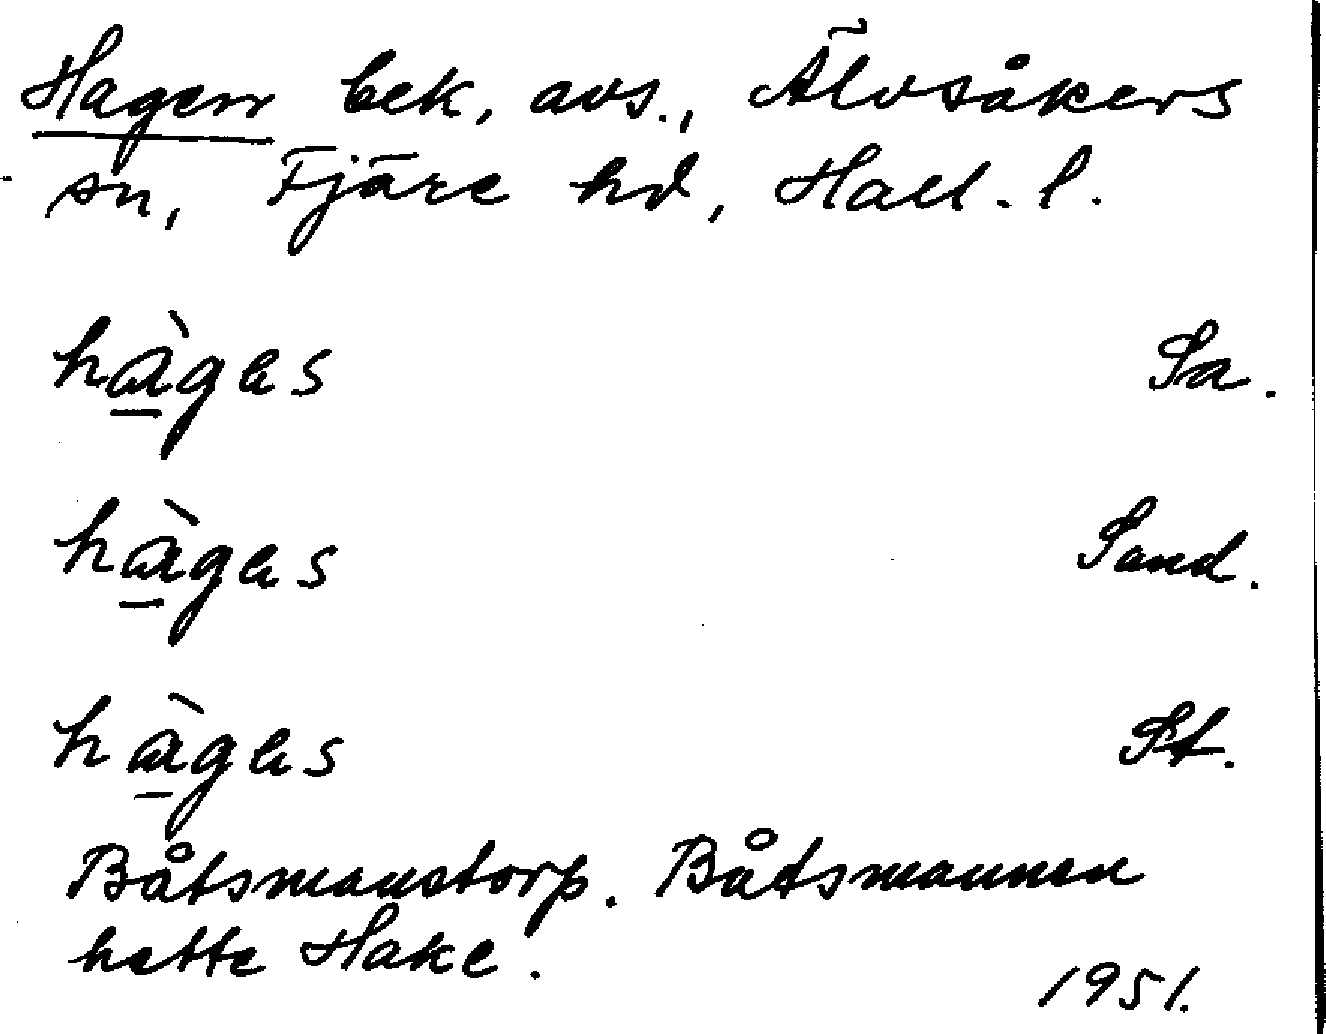 Hagen bek. avs., Älvsåkers
sn, Fjäre hd, Hall. l.
hàgas Sa.
hàgas Sand.
hàgas St.
Båtsmanstorp. Båtsmannen
hette Hake.
1951.